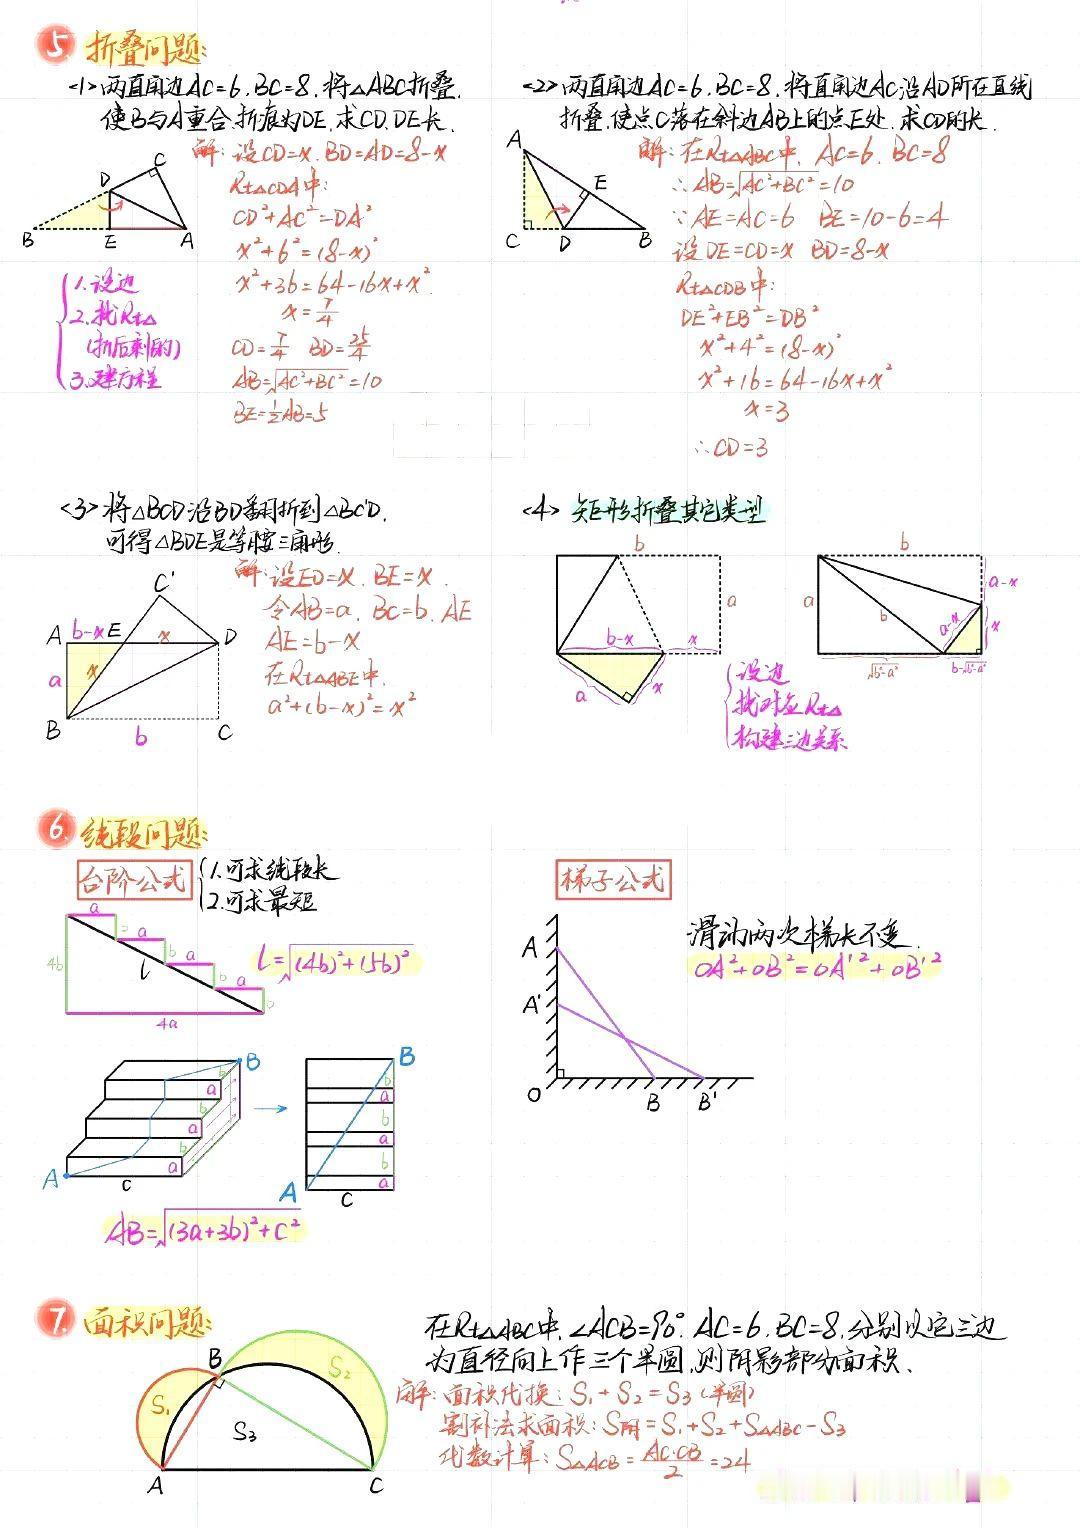 5 折叠问题:
<1> 两直角边AC=6,BC=8,将△ABC折叠,
使B与A重合,折痕为DE,求CD,DE长.
解:设CD=x,BD=AD=8-x
Rt△CDA中:
CD²+AC²=DA²
x²+6²=(8-x)²
x²+36=64-16x+x²
x=7/4
CD=7/4 BD=25/4
AB=√AC²+BC²=10
BE=1/2AB=5
C
D
B
E
A
1.设边
2.找Rt△
(折后剩的)
3.建方程
<2> 两直角边AC=6,BC=8,将直角边AC沿AD所在直线
折叠,使点C落在斜边AB上的点E处,求CD的长.
解:在Rt△ABC中,AC=6,BC=8
∴AB=√AC²+BC²=10
∵AE=AC=6 BE=10-6=4
设DE=CD=x BD=8-x
Rt△CDB中:
DE²+EB²=DB²
x²+4²=(8-x)²
x²+16=64-16x+x²
x=3
∴CD=3
A
E
C
D
B
<3> 将△BCD沿BD翻折到△BC'D,
可得△BDE是等腰三角形.
解:设ED=x,BE=x.
令AB=a,BC=b,AE
AE=b-x
在Rt△ABE中,
a²+(b-x)²=x²
C'
A b-x E x D
a x
B b C
<4> 矩形折叠其它类型
b
a
b-x x
a x
b
a a-x
b a-x x
√b²-a² b-√b²-a²
设边
找对应Rt△
构建三边关系
6 线段问题:
台阶公式
1.可求线段长
2.可求最短
a
b
a
b
a
b
a
b
4b
l
4a
L=√(4b)²+(5b)²
B
b
a
b
a
b
a
A
C
B
b
a
b
a
b
a
A
C
AB=√(3a+3b)²+C²
梯子公式
滑动两次梯长不变.
OA²+OB²=OA'²+OB'²
A
A'
O
B
B'
7. 面积问题:
在Rt△ABC中,∠ACB=90°,AC=6,BC=8,分别以它三边
为直径向上作三个半圆,则阴影部分面积.
解:面积代换:S₁+S₂=S₃(半圆)
割补法求面积:S阴=S₁+S₂+S△ABC-S₃
代数计算:S△ACB=AC·CB/2=24
B
S₁
S₂
S₃
A
C